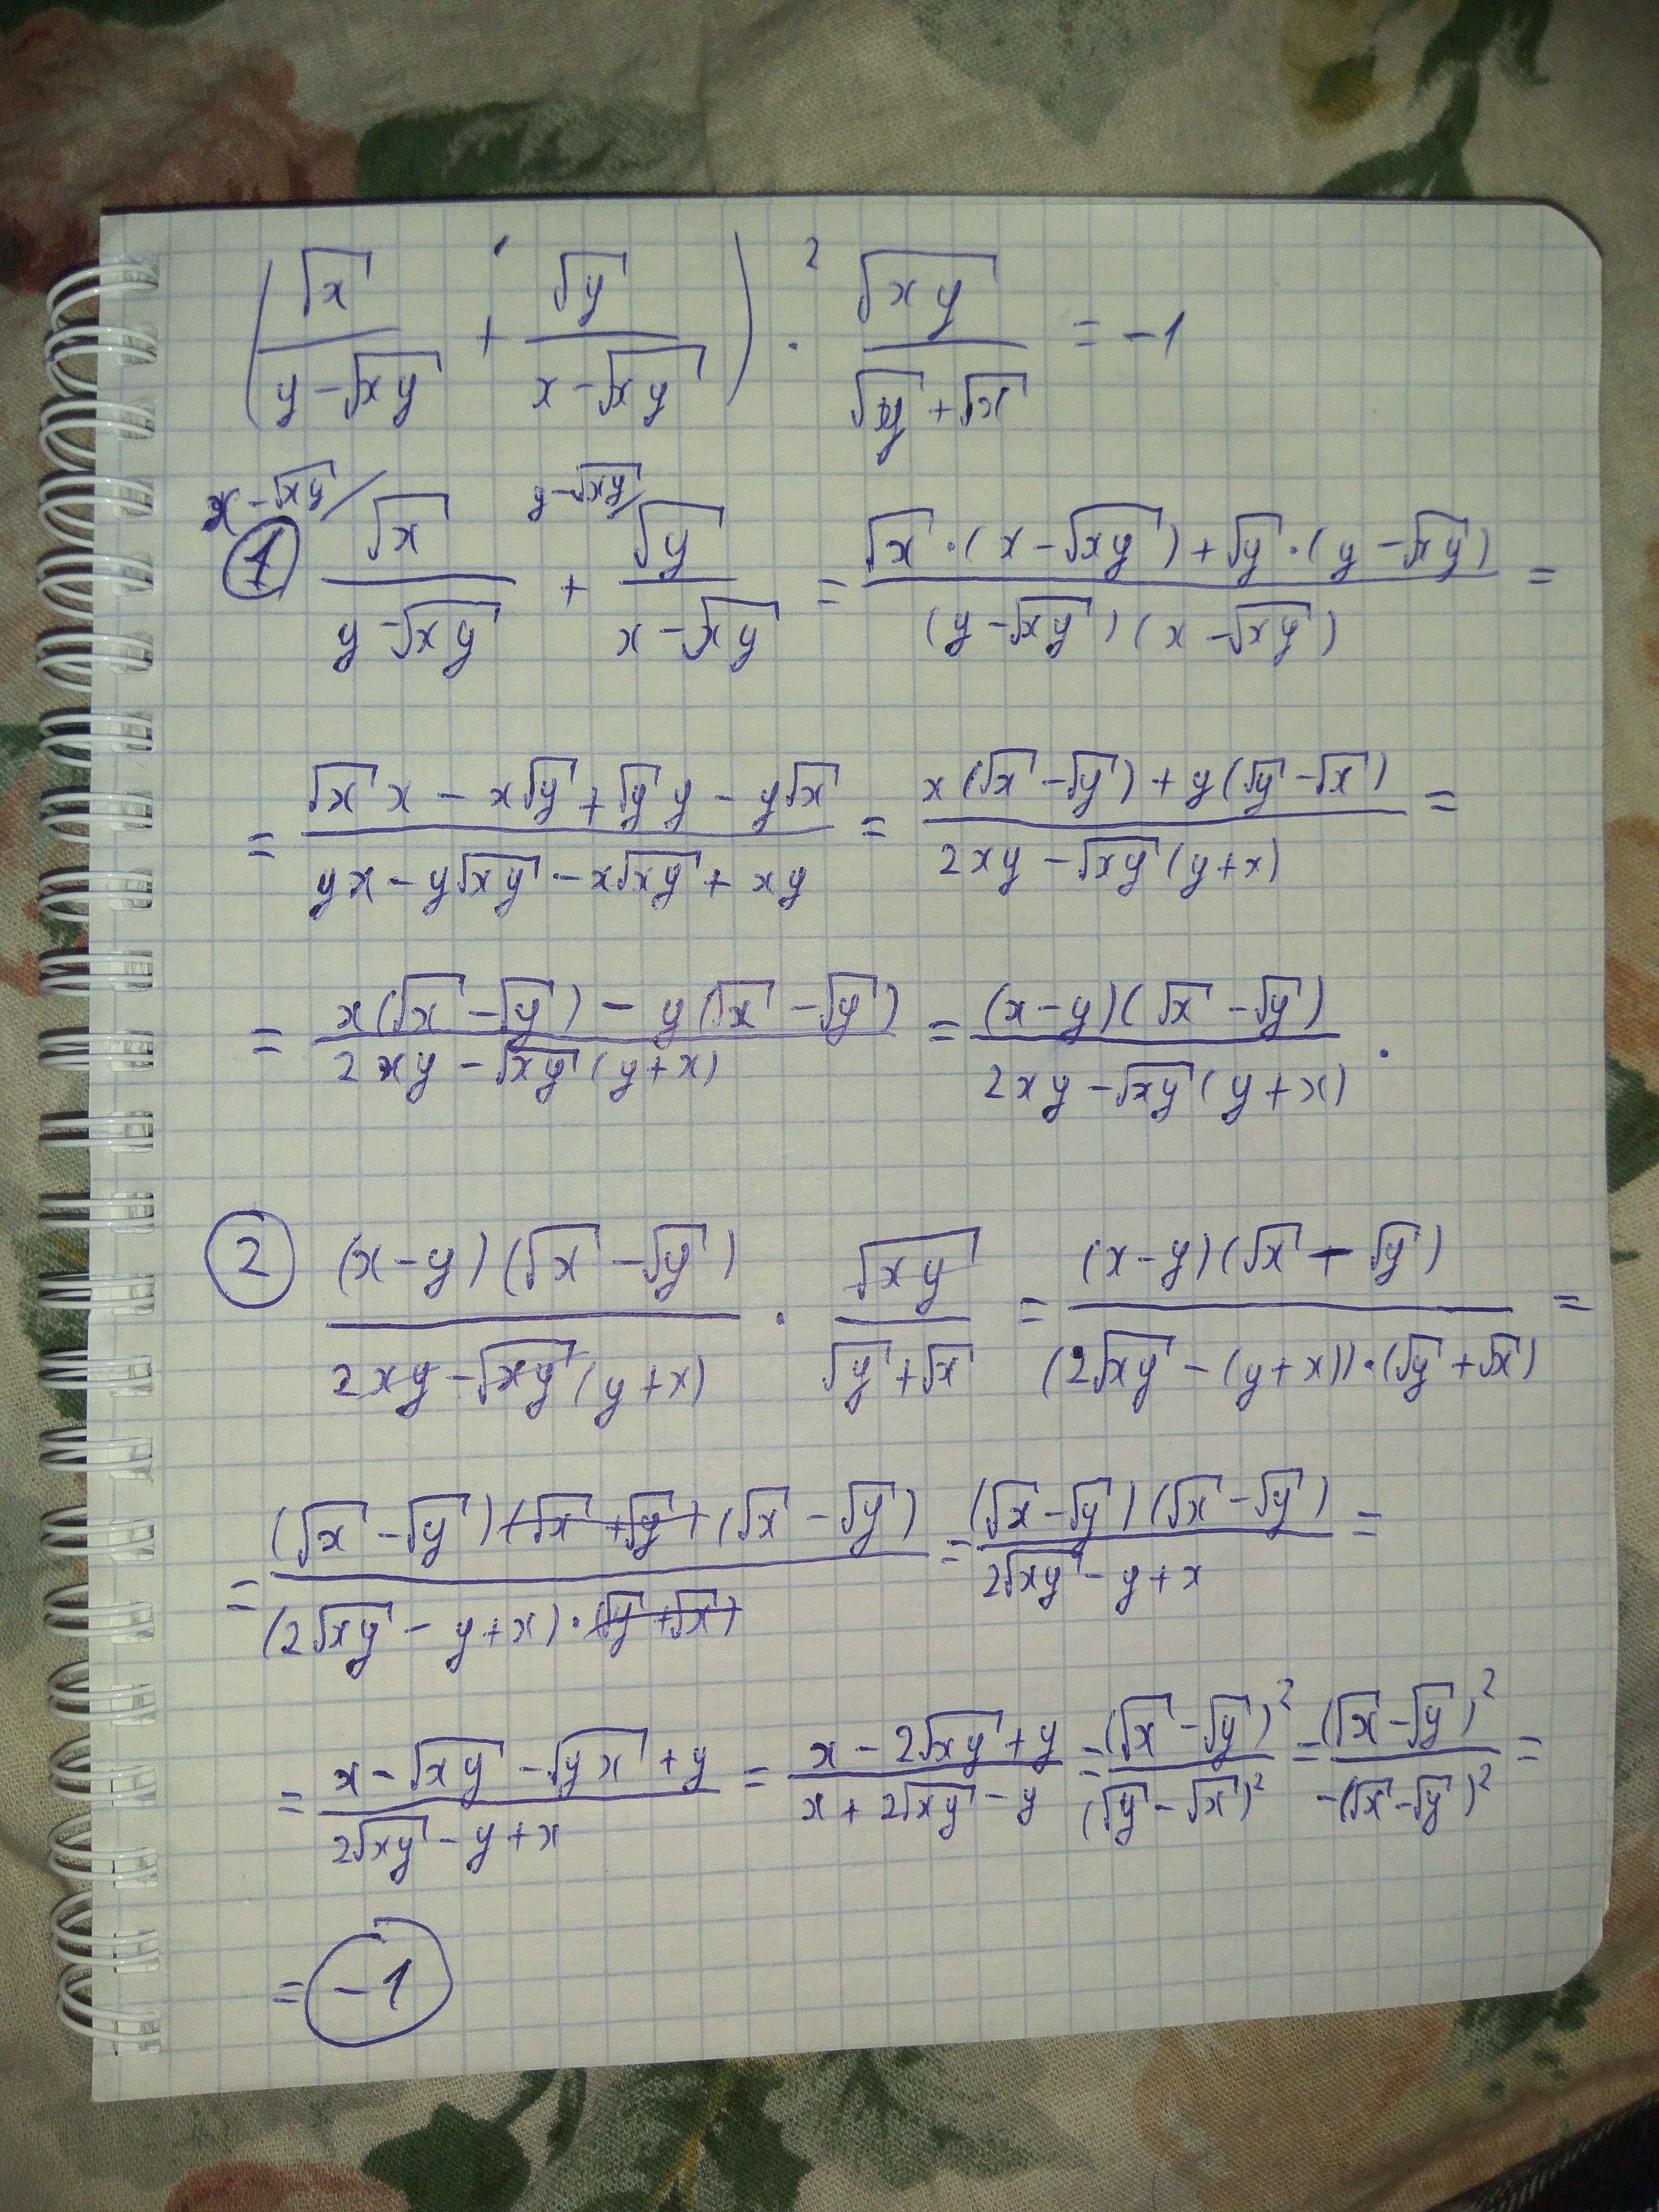 (√x / (y-√xy) + √y / (x-√xy)) · √xy / (√y+√x) = -1
1 2
x-√xy/ y-√xy/
① √x / (y-√xy) + √y / (x-√xy) = (√x·(x-√xy)+√y·(y-√xy)) / ((y-√xy)(x-√xy)) =
= (√x x - x√y + √y y - y√x) / (yx - y√xy - x√xy + xy) = (x(√x-√y)+y(√y-√x)) / (2xy-√xy(y+x)) =
= (x(√x-√y) - y(√x-√y)) / (2xy-√xy(y+x)) = ((x-y)(√x-√y)) / (2xy-√xy(y+x)).
② ((x-y)(√x-√y)) / (2xy-√xy(y+x)) · √xy / (√y+√x) = ((x-y)(√x-√y)) / ((2√xy-(y+x))·(√y+√x)) =
= ((√x-√y)(√x+√y)(√x-√y)) / ((2√xy-y+x)·(√y+√x)) = ((√x-√y)(√x-√y)) / (2√xy-y+x) =
= (x-√xy-√yx+y) / (2√xy-y+x) = (x-2√xy+y) / (x+2√xy-y) = (√x-√y)² / (√y-√x)² = (√x-√y)² / -(√x-√y)² =
= -1